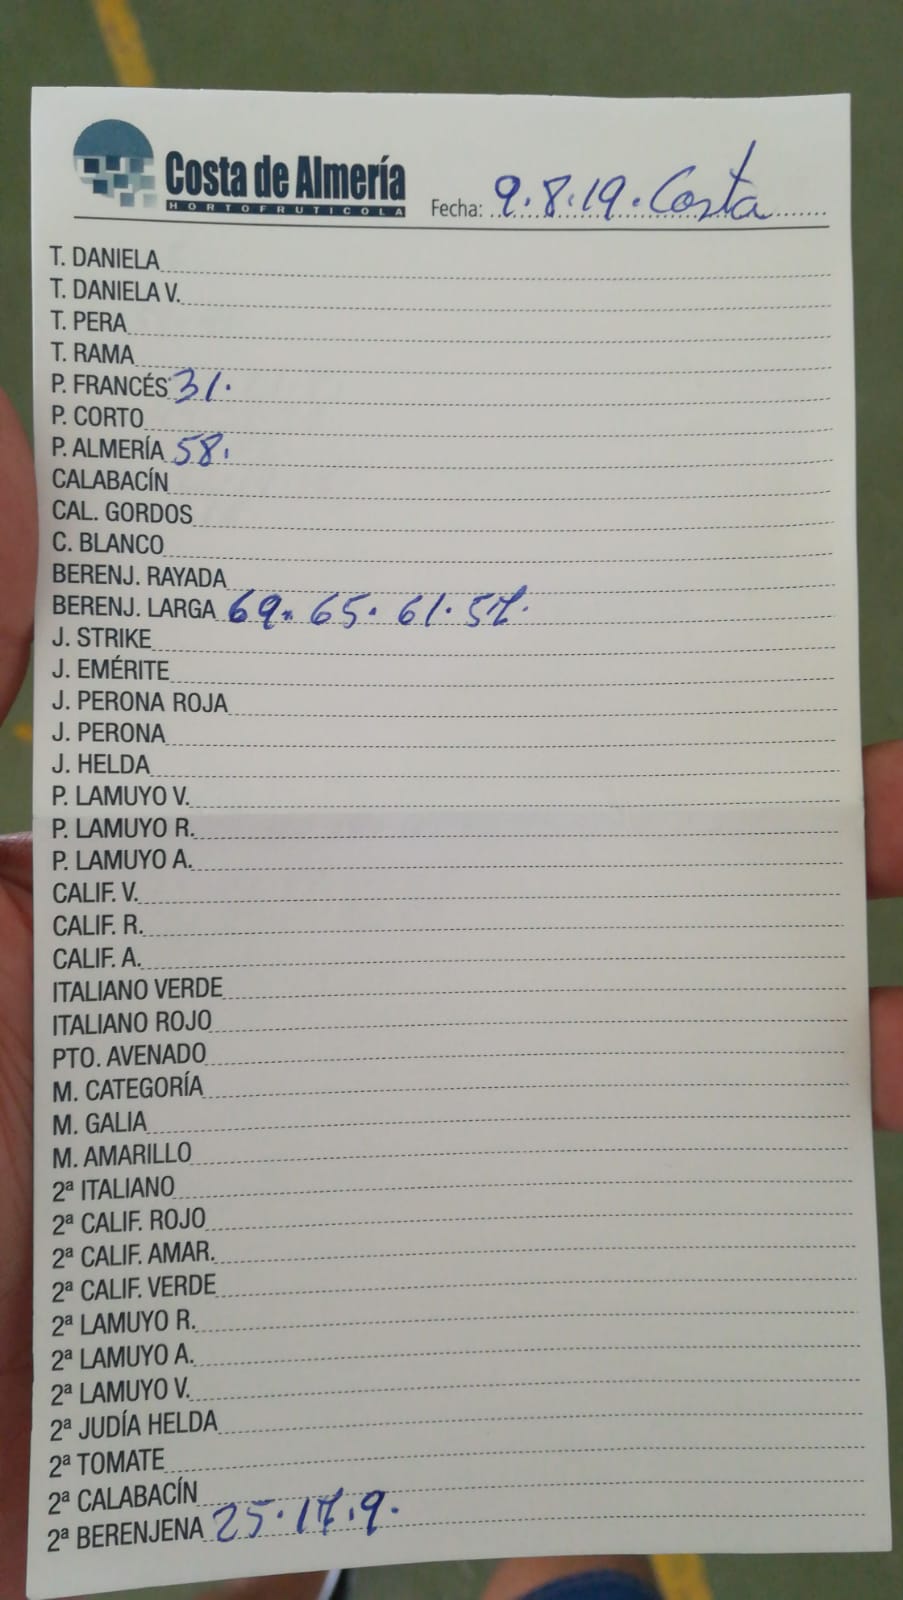 Costa de Almería
HORTOFRUTICOLA
Fecha: 9.8.19. Costa
T. DANIELA
T. DANIELA V.
T. PERA
T. RAMA
P. FRANCÉS 31.
P. CORTO
P. ALMERÍA 58.
CALABACÍN
CAL. GORDOS
C. BLANCO
BERENJ. RAYADA
BERENJ. LARGA 69. 65. 61. 57.
J. STRIKE
J. EMÉRITE
J. PERONA ROJA
J. PERONA
J. HELDA
P. LAMUYO V.
P. LAMUYO R.
P. LAMUYO A.
CALIF. V.
CALIF. R.
CALIF. A.
ITALIANO VERDE
ITALIANO ROJO
PTO. AVENADO
M. CATEGORÍA
M. GALIA
M. AMARILLO
2ª ITALIANO
2ª CALIF. ROJO
2ª CALIF. AMAR.
2ª CALIF. VERDE
2ª LAMUYO R.
2ª LAMUYO A.
2ª LAMUYO V.
2ª JUDÍA HELDA
2ª TOMATE
2ª CALABACÍN
2ª BERENJENA 25.17.9.